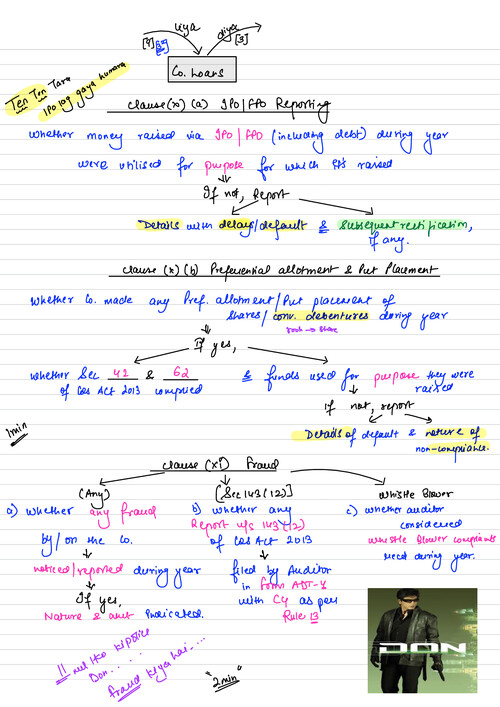 liya diya
[9] [3]
Co. Loans
Ten Ten Tara
IPO log gaya humara
clause(x) (a) IPO/FPO Reporting
whether money raised via IPO/FPO (including debt) during year
were utilised for purpose for which it's raised
If not, Report
Details with delays/default & subsequent rectification,
if any.
clause (x)(b) Preferential allotment & Pvt Placement
whether Co. made any Pref. allotment/Pvt placement of
shares/conv. debentures during year
→ share
If yes,
whether Sec 42 & 62
of Cos Act 2013 complied
& funds used for purpose they were
raised
If not, report
Details of default & nature of
non-compliance.
1min
clause (xi) Fraud
(Any)
a) whether any fraud
by/on the Co.
noticed/reported during year
If yes,
Nature & amt indicated.
[Sec 143(12)]
b) whether any
Report u/s 143(12)
of Cos Act 2013
filed by Auditor
in Form ADT-4
with CG as per
Rule 13
Whistle Blower
c) whether auditor
considered
whistle Blower complaints
recd during year.
11 mulko ki police
Don.....
fraud kiya hai....
"2min"
DON